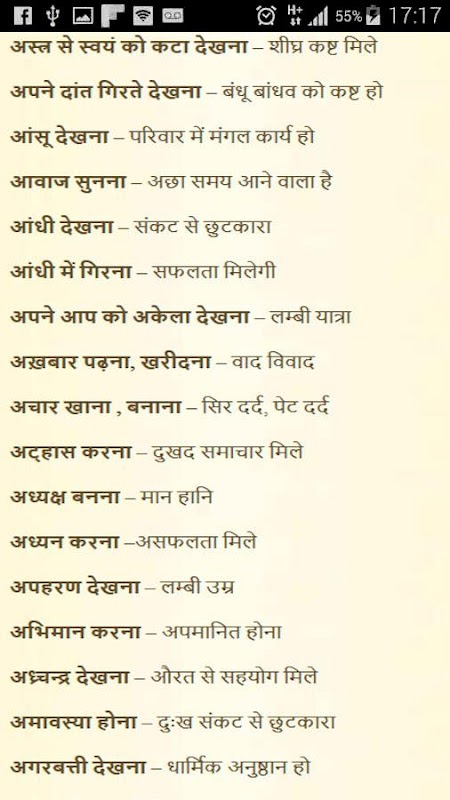 H+
55%
17:17
अस्त्र से स्वयं को कटा देखना – शीघ्र कष्ट मिले
अपने दांत गिरते देखना – बंधू बांधव को कष्ट हो
आंसू देखना – परिवार में मंगल कार्य हो
आवाज सुनना – अछा समय आने वाला है
आंधी देखना – संकट से छुटकारा
आंधी में गिरना – सफलता मिलेगी
अपने आप को अकेला देखना – लम्बी यात्रा
अख़बार पढ़ना, खरीदना – वाद विवाद
अचार खाना , बनाना – सिर दर्द, पेट दर्द
अट्हास करना – दुखद समाचार मिले
अध्यक्ष बनना – मान हानि
अध्यन करना –असफलता मिले
अपहरण देखना – लम्बी उम्र
अभिमान करना – अपमानित होना
अध्र्चन्द्र देखना – औरत से सहयोग मिले
अमावस्या होना – दुःख संकट से छुटकारा
अगरबत्ती देखना – धार्मिक अनुष्ठान हो